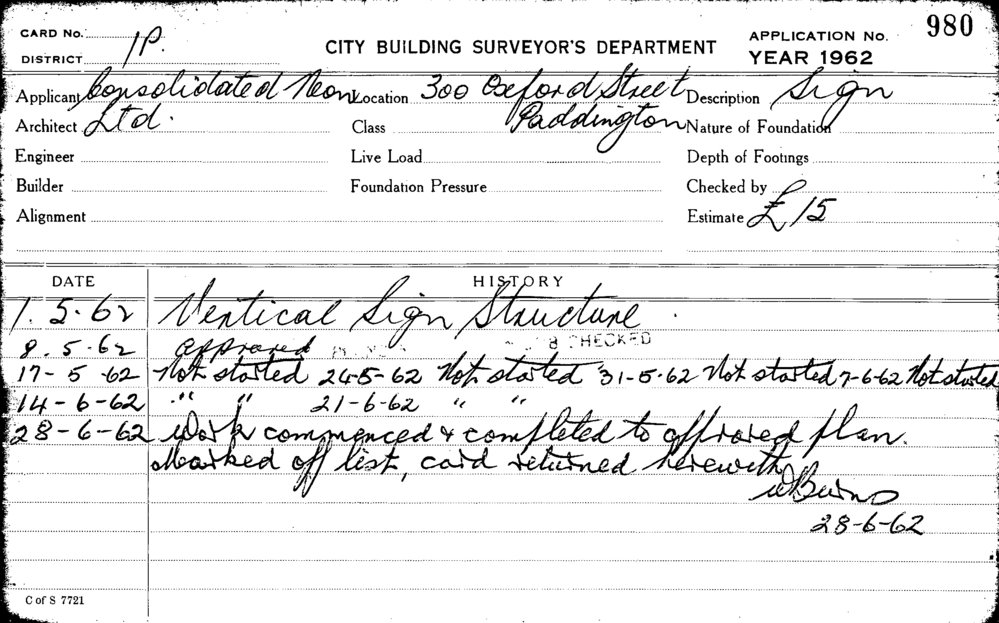 CARD No. 1P. CITY BUILDING SURVEYOR'S DEPARTMENT APPLICATION No. 980
DISTRICT YEAR 1962
Applicant Consolidated Neon Location 300 Oxford Street Description Sign
Architect Ltd. Class Paddington Nature of Foundation
Engineer Live Load Depth of Footings
Builder Foundation Pressure Checked by
Alignment Estimate £15
DATE HISTORY
1.5.62 Vertical Sign Structure.
8.5.62 approved CHECKED
17-5-62 Not started 24-5-62 Not started 31-5-62 Not started 7-6-62 Not started
14-6-62 " " 21-6-62 " "
28-6-62 Work commenced & completed to approved plan.
Marked off list, card returned herewith
WBurns
28-6-62
C of S 7721